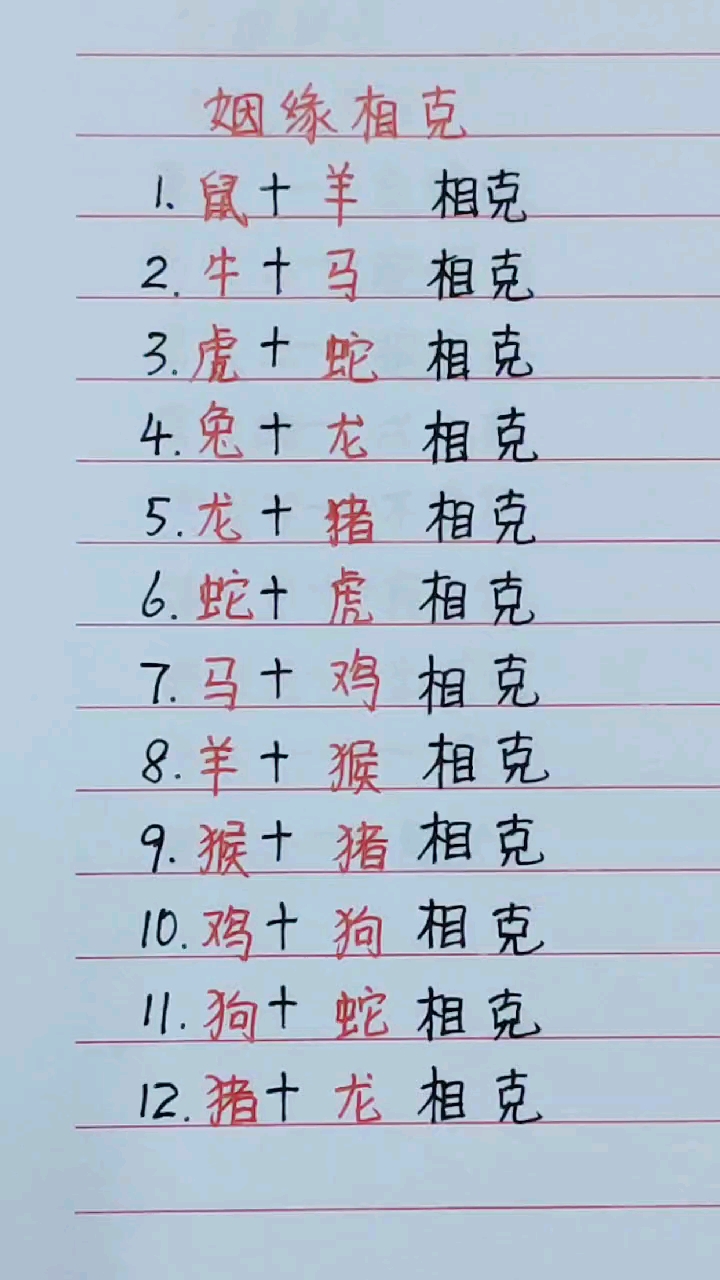 姻缘相克
1. 鼠+羊 相克
2. 牛+马 相克
3. 虎+蛇 相克
4. 兔+龙 相克
5. 龙+猪 相克
6. 蛇+虎 相克
7. 马+鸡 相克
8. 羊+猴 相克
9. 猴+猪 相克
10. 鸡+狗 相克
11. 狗+蛇 相克
12. 猪+龙 相克